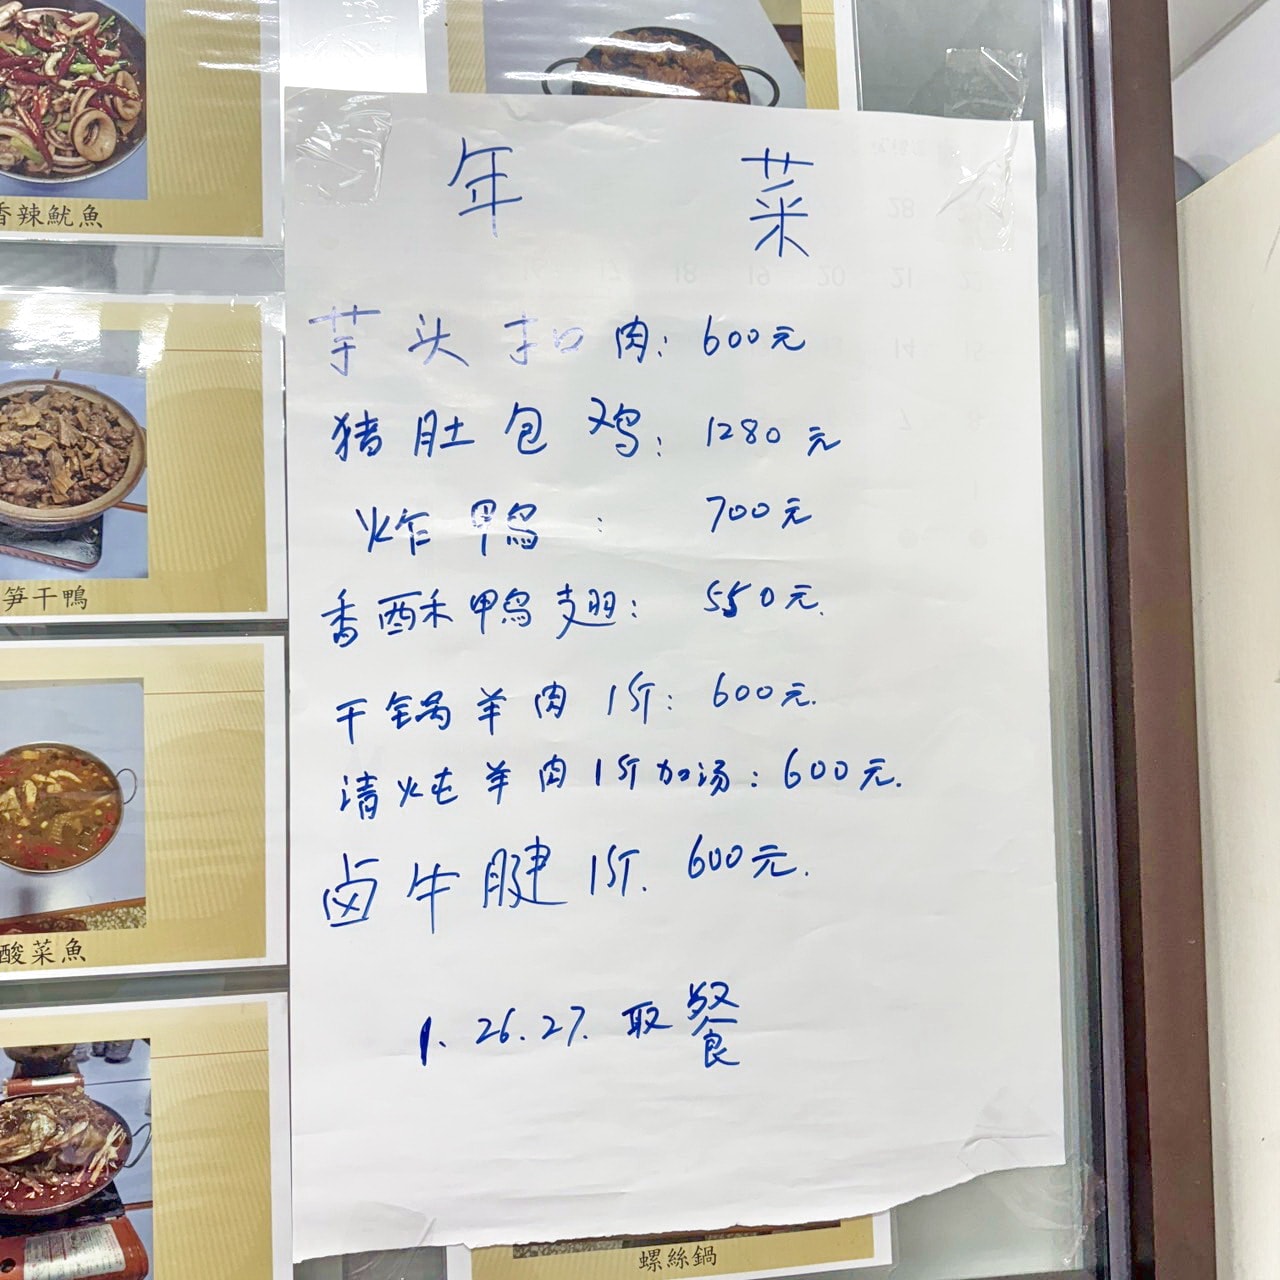 年 菜
芋头扣肉: 600元
猪肚包鸡: 1280元
炸鸭: 700元
香酥鸭翅: 550元.
干锅羊肉1斤: 600元.
清炖羊肉1斤加汤: 600元.
卤牛腱1斤. 600元.
1. 26.27. 取餐
香辣魷魚
笋干鴨
酸菜魚
螺絲鍋